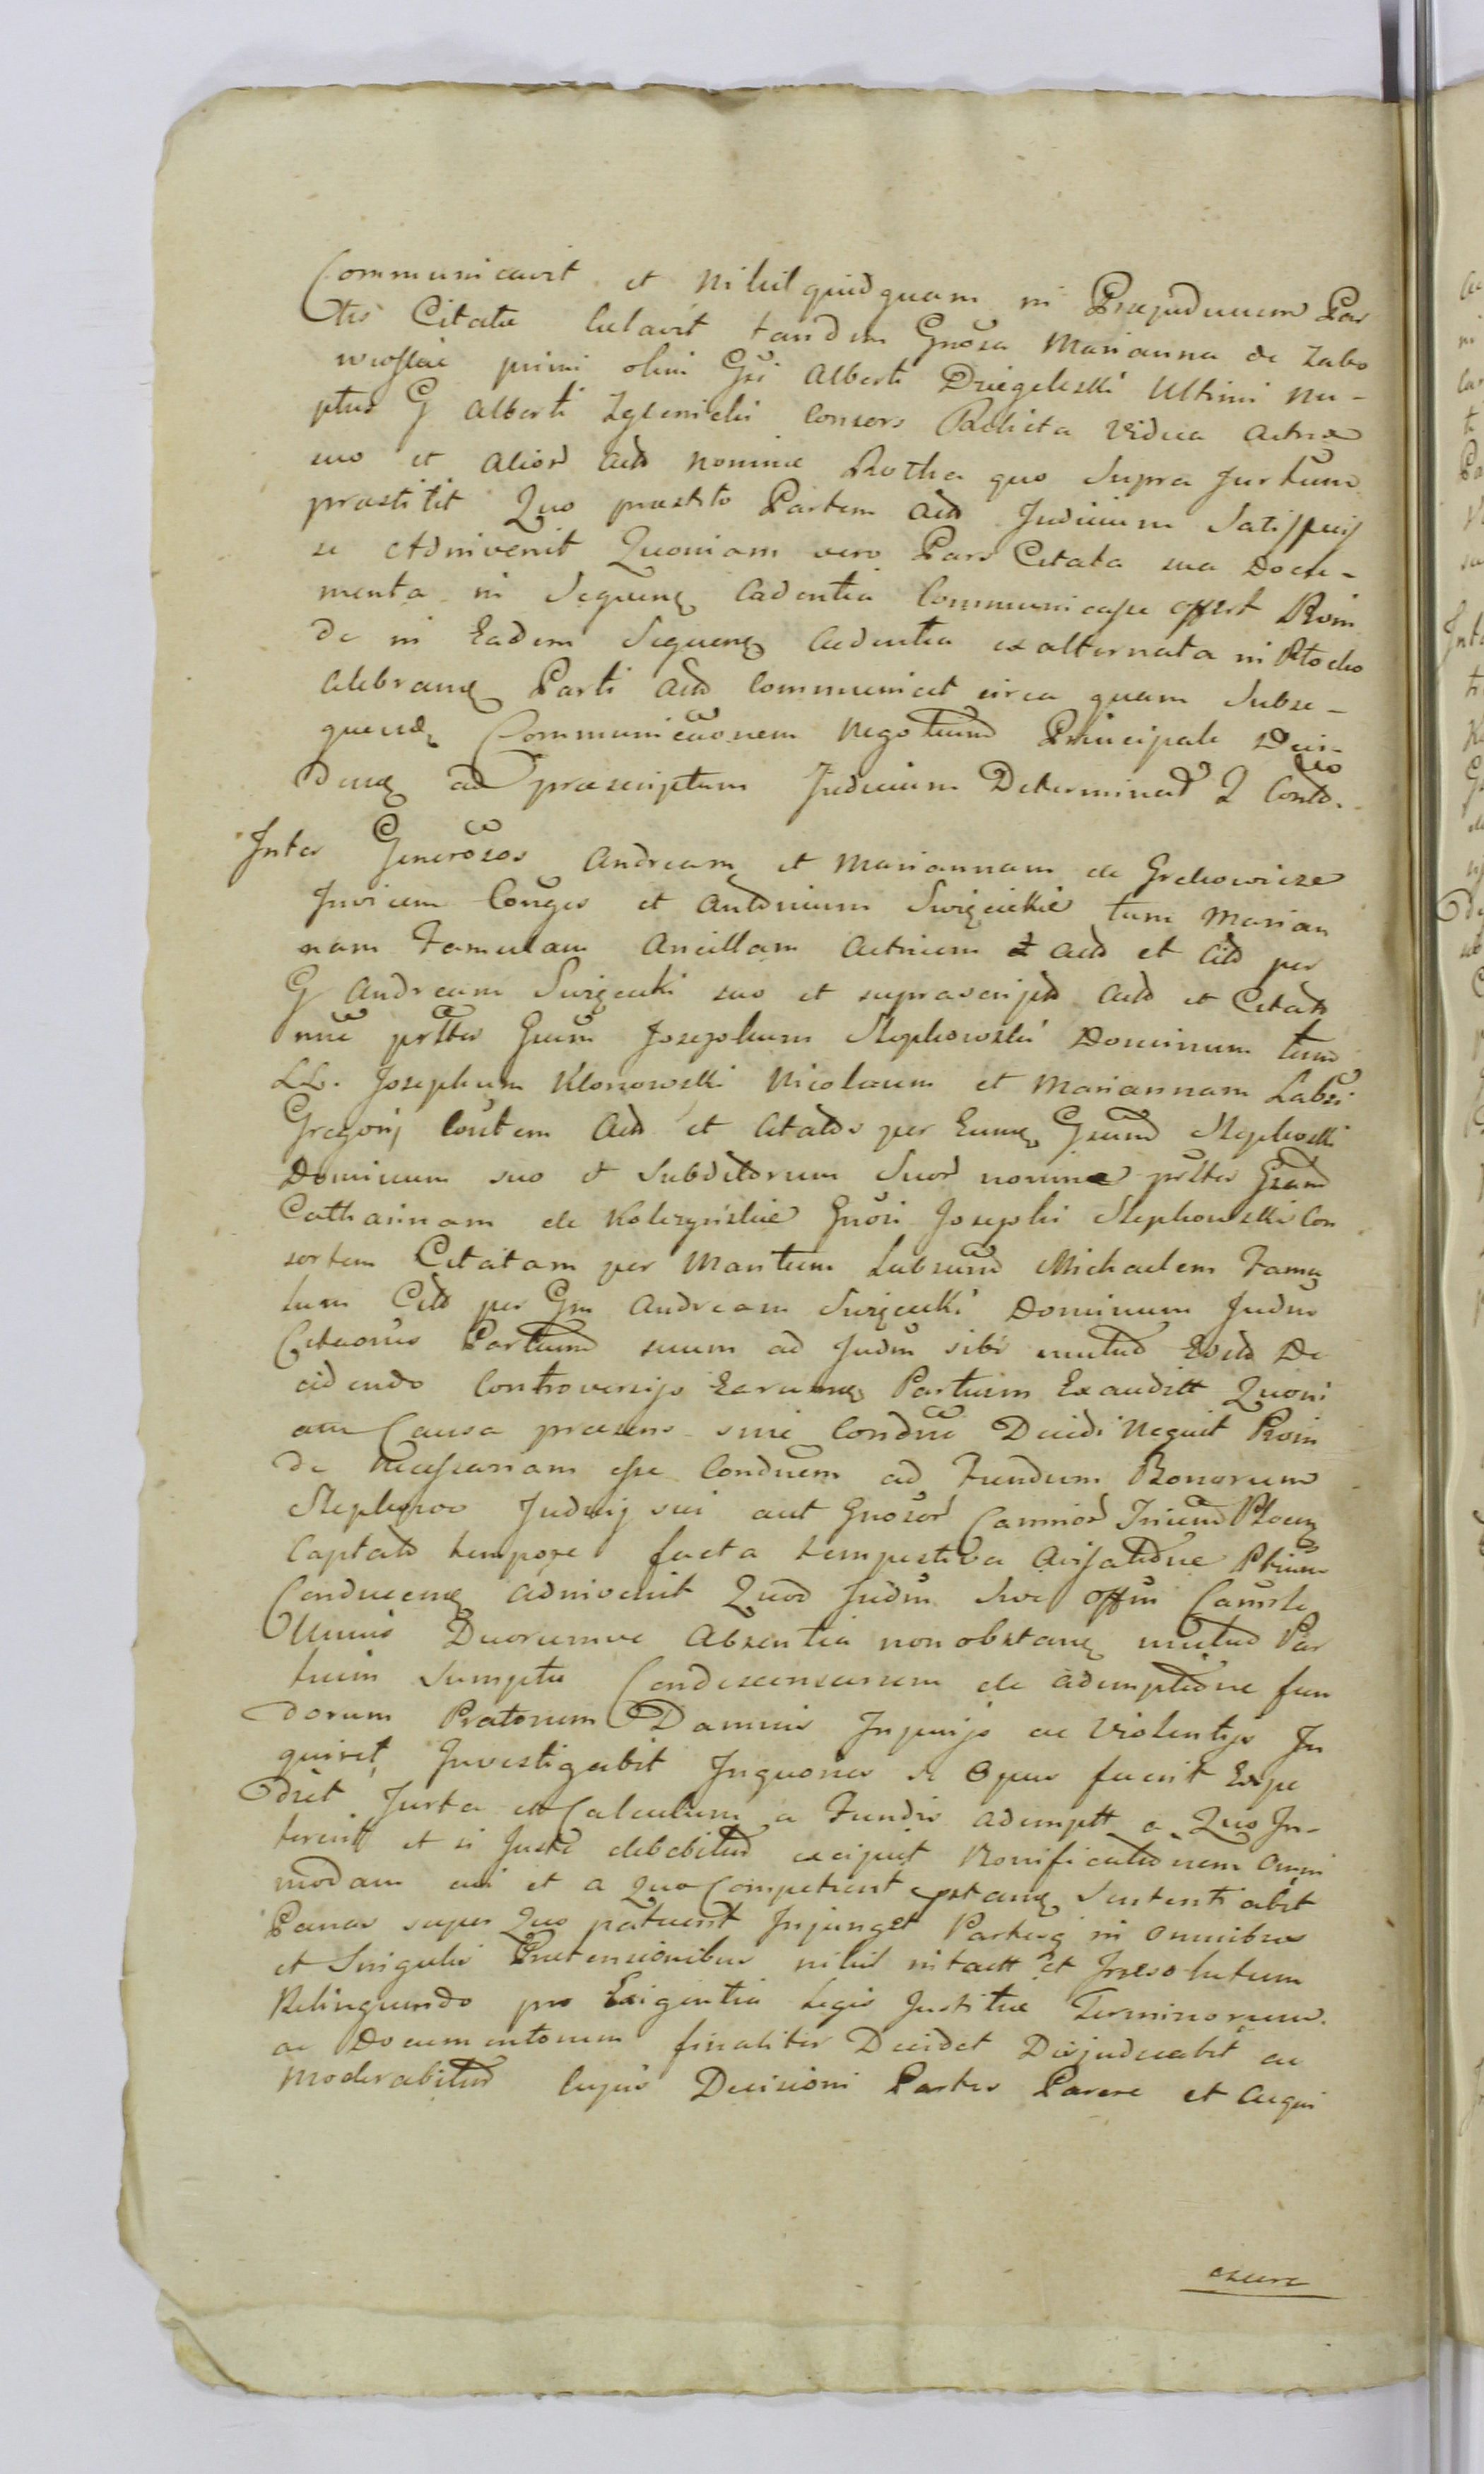 Communicavit et nihil quidquam in Praejudicium Par
tis Citatae Celavit tandem Gnosa Marianna de Zabo
wroskie primi olim Gsi Alberti Dziegeleski Ultimi nu-
ptus G Alberti Zglenicki Consors Relicta Vidua Actrix
suo et aliord Actd nomine Rotha quo Supra Jurtum
prastitit Quo prastito Partem Actd Judicium Satisfecis
se Adinvenit Quoniam vero Pars Citata sua Docu-
menta in Sequenq Cadentia Communicasse offert Proin
de in Eadem Sequenq Cadentia ex alternata in Plocko
Celebranq Parti Actd Communicet circa quam Subse-
quenq Communicaonem Negotium Principale Deci-
denq ad praescriptum Judicium Determinad Q Contd.
Inter Generosos Andream et Mariannam de Grekowicze
Invicem Conges et Antonium Swięcickie tum Marian
nam Famulam Ancillam Actricem et Actd et Citd per
G Andream Swięcicki suo et suprascriptd Actd et Citatd
nne prster Gnum Josephum Stephowski Dominum tum
LL. Josephum Klonowski Nicolaum et Mariannam Labsi
Gregorij Contem Actd et Citatds per Eumq Gnum Stephoski
Dominum suo et Subditorum Suord nomine prster Gsam
Catharinam de Kolczyńskie Gnosi Josephi Stephowski Con
sortem Citatam per Maritum Labsum Michaelem Famu
lum Citd per Gm Andream Swięcicki Dominum Judm
Cituonis Partium suum ad Judm sibi mutud Evictd De
cidendo Controversijs Earumq Partium Exauditt Quoni
am Causa praesens sine Conductu Decidi Nequit Proin
de Necessariam esse Conduem ad Fundum Bonorum
Stephowo Judicij sui aut Gnosord Camriord Plocen
Captato tempore facta tempestiva Avisatione Ptium
Conducenq adinvenit Quod Judm Sive Offm Camrle
Unius Duorumve Absentia non obstanq mutud Par
tium Sumptu Condescensurum de ademptione fun
dorum Pratorum Damnis Injurijs ac Violentijs In
quiret, Investigabit Inquones si Opus fuerit Expe
diet Jurta et Calculum a Fundis ademptt a Quo In-
tererit et si Juste debebitud accipiet Bonificationem Omni
modam cui et a Quo Competient Sententiabit
Panas super Quo patuerit Injunget Partesq in Omnibus
et Singulis Praetensionibus nihil intactt et Irresolutum
Relinquendo pro Exigentia Legis Justitiae Terminorum.
ac Documentorum finaliter Decidet Dijudicabit ac
Moderabitud Cujus Decisioni Partes Parere et Acqui